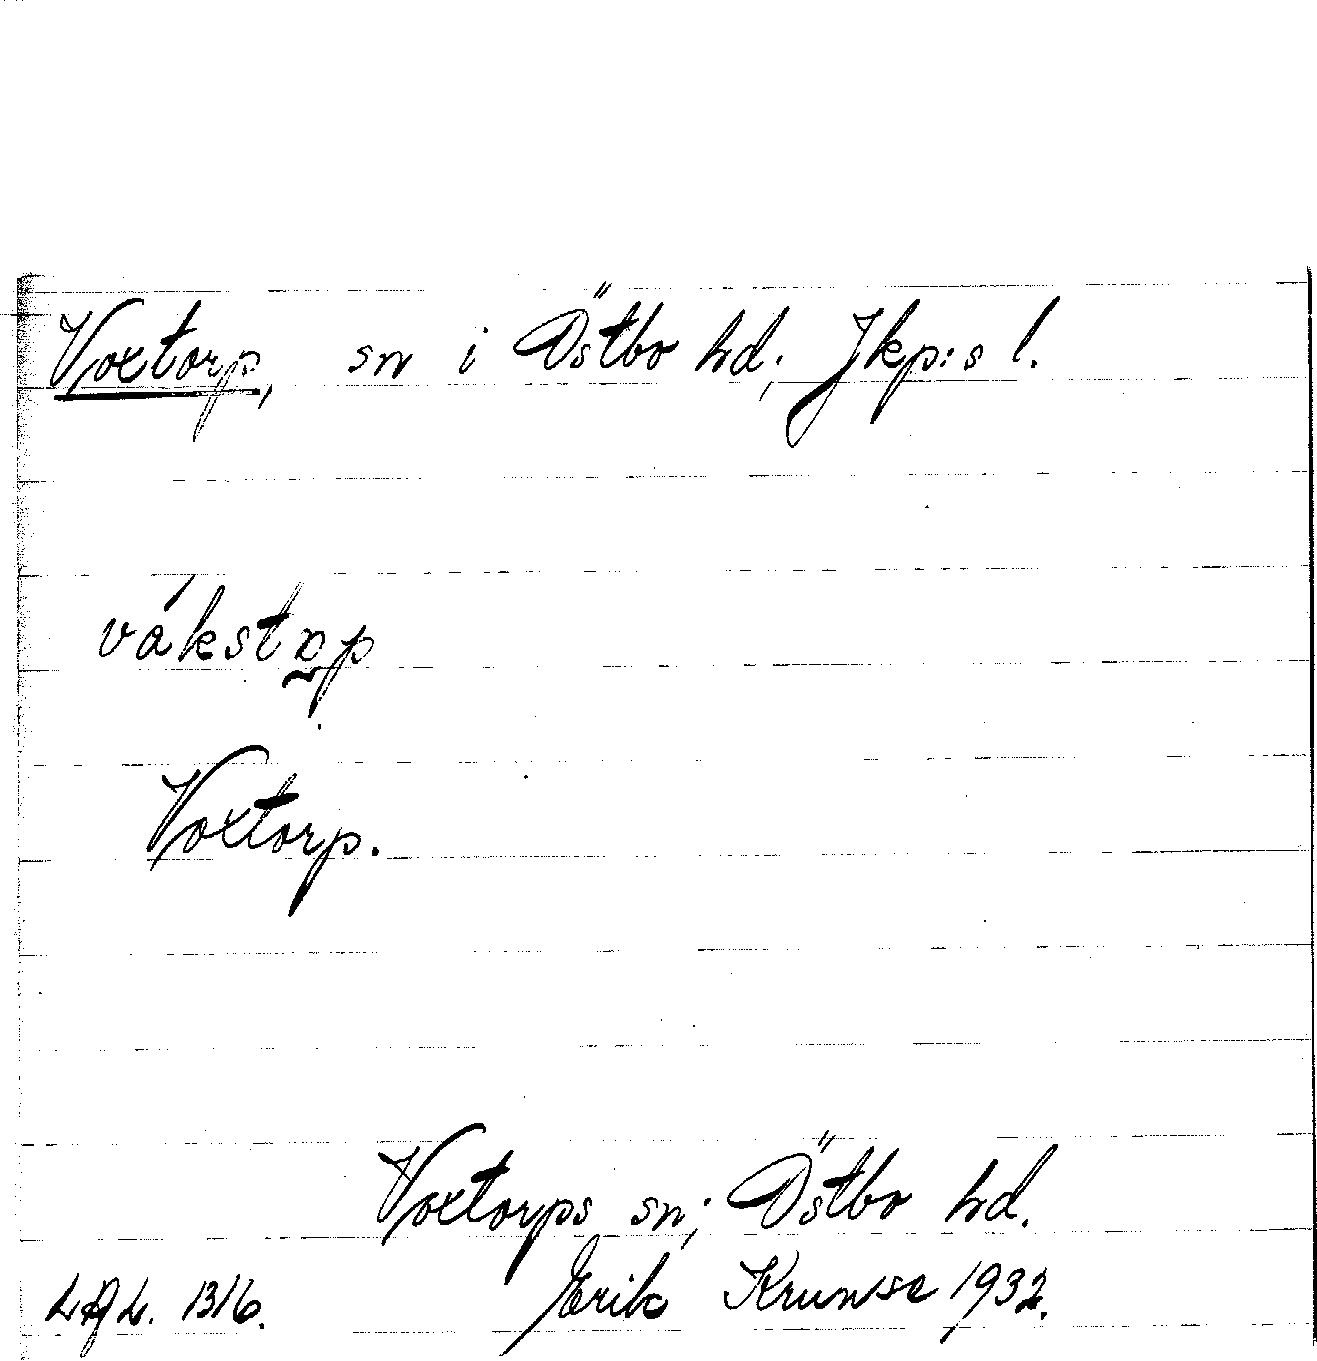 Voxtorp, sn i Östbo hd; Jkp:s l.
Voxtorp.
Voxtorps sn; Östbo hd.
L.A.L. 1316. Erik Krunse 1932.